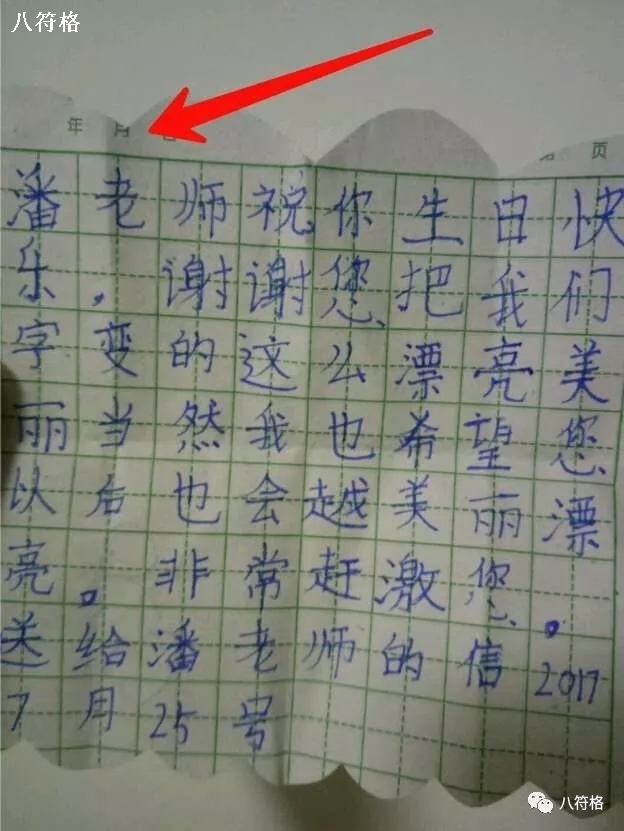 八符格
年 月 日 第 页
潘老师祝你生日快
乐，谢谢您把我们
字变的这么漂亮美
丽当然我也希望您
以后也会越美丽漂
亮。非常赶激您。
送给潘老师的信2017
7月25号
八符格